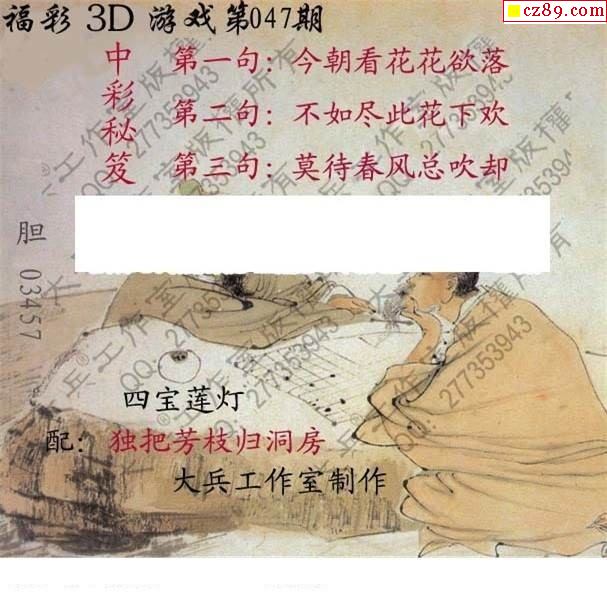 cz89.com
福彩 3D 游戏第047期
中彩秘笈
第一句：今朝看花花欲落
第二句：不如尽此花下欢
第三句：莫待春风总吹却
胆 03457
四宝莲灯
配：独把芳枝归洞房
大兵工作室制作
大兵®工作室版权所有
QQ：277353943